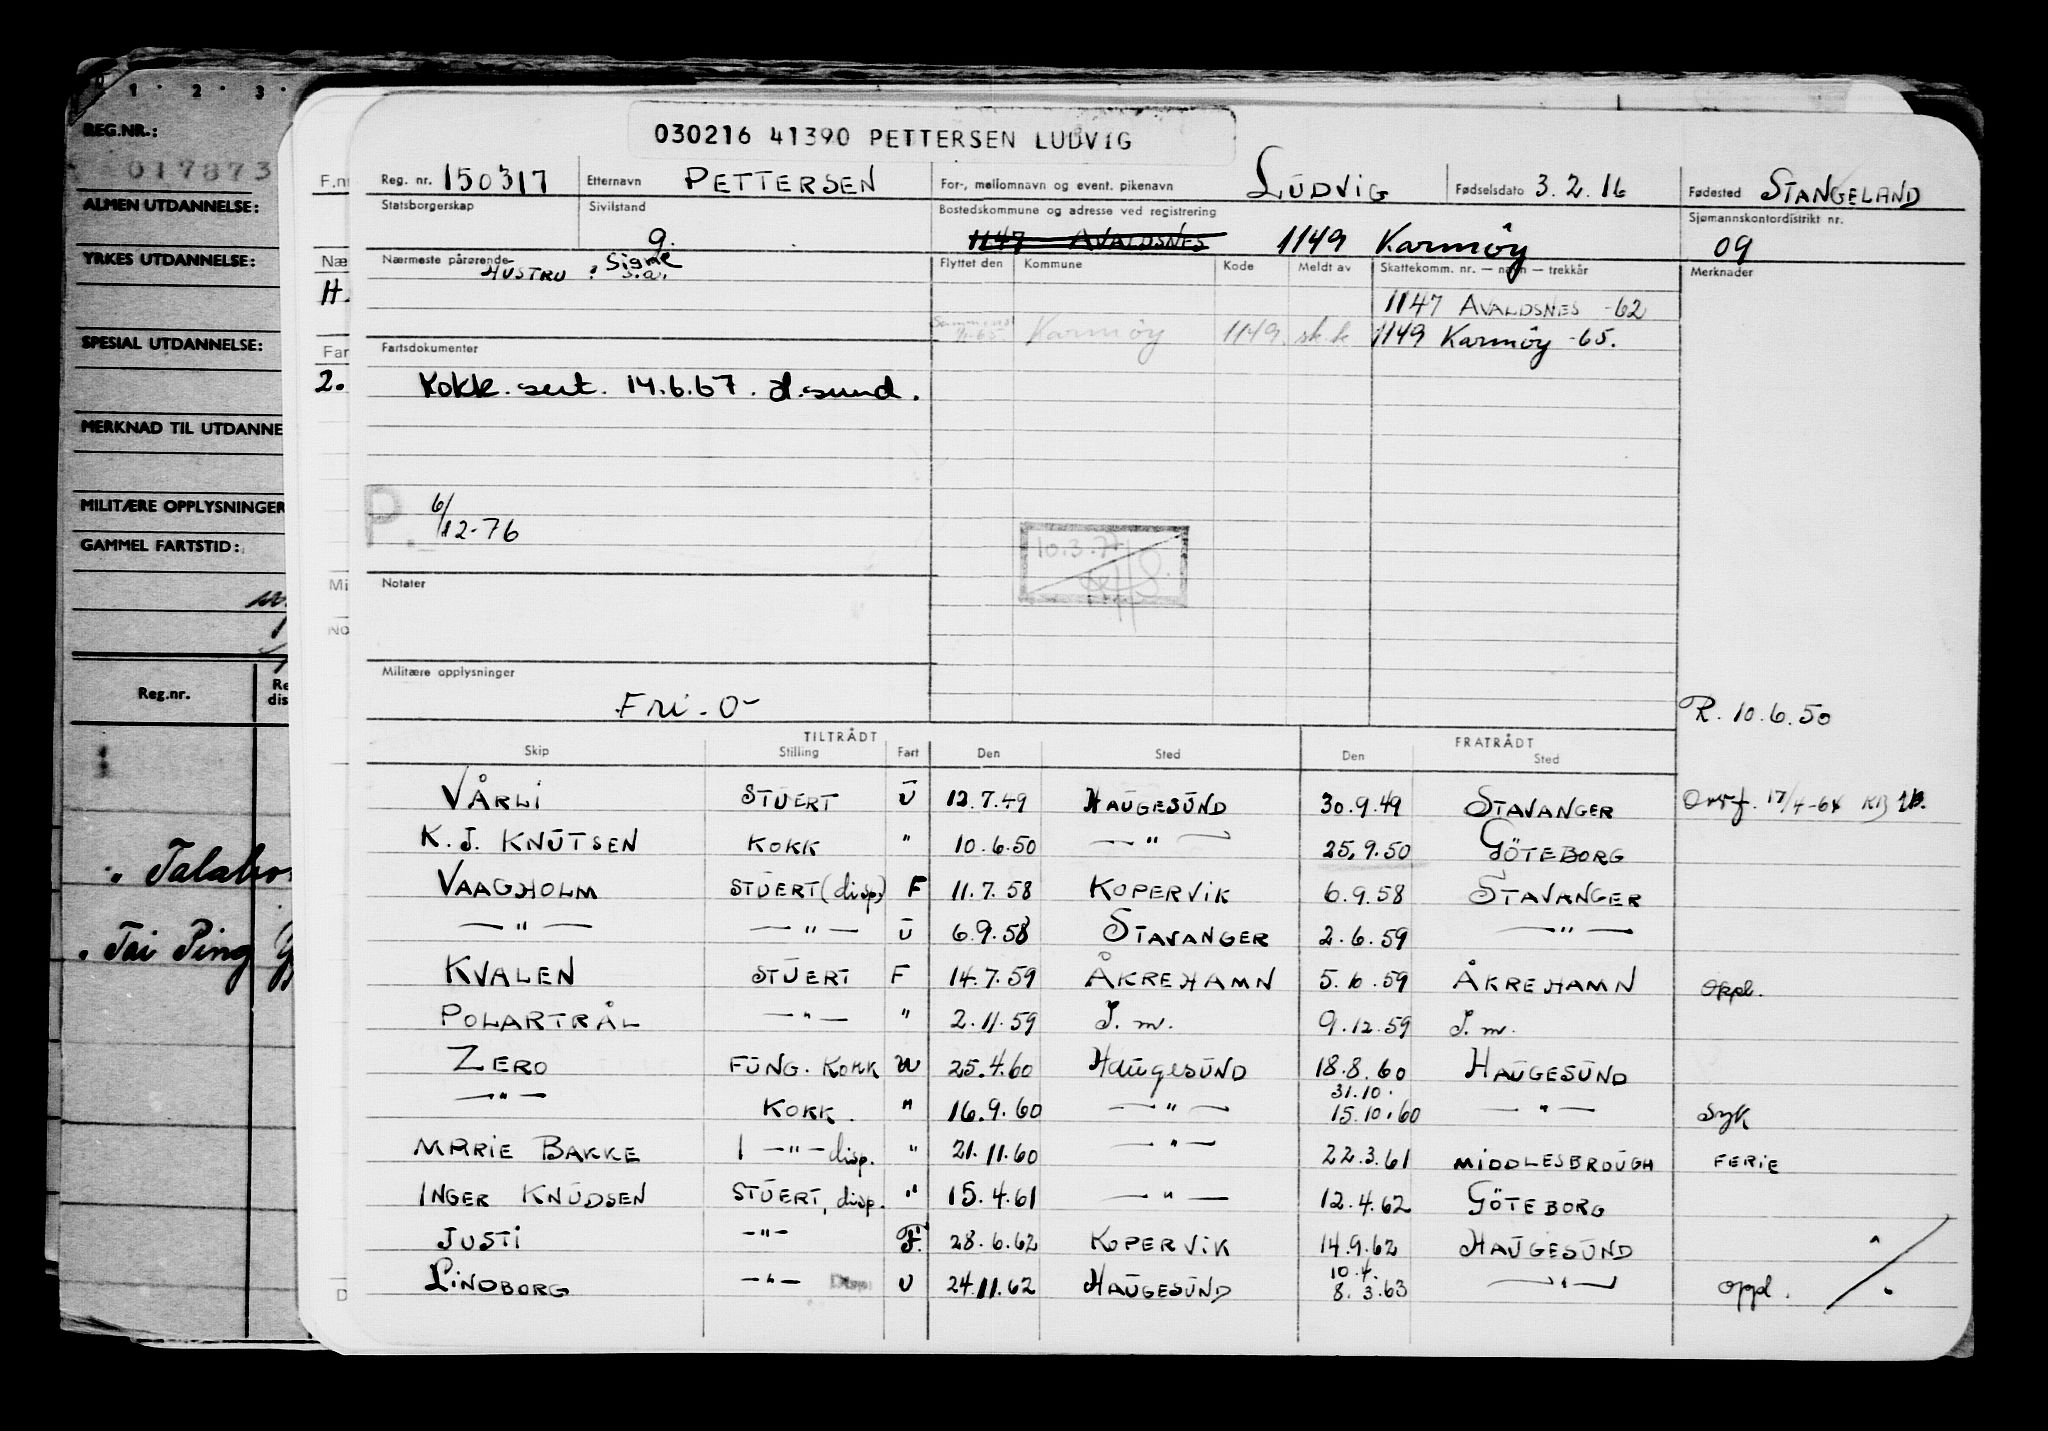 1 · 2 · 3 ·
REG.NR.:
017873
ALMEN UTDANNELSE:
YRKES UTDANNELSE:
SPESIAL UTDANNELSE:
MERKNAD TIL UTDANNE
MILITÆRE OPPLYSNINGER
GAMMEL FARTSTID:
Reg.nr.
Re
dis
Tai Ping
F.nr
Næ
H.
Far
2.
Mi
No
D
030216 41390 PETTERSEN LUDVIG
Reg. nr. 150317 Etternavn PETTERSEN For-, mellomnavn og event. pikenavn LUDVIG Fødselsdato 3.2.16 Fødested STANGELAND
Statsborgerskap Sivilstand g. Bostedskommune og adresse ved registrering 1147 AVALDSNES 1149 Karmöy Sjømannskontordistrikt nr. 09
Nærmeste pårørende HUSTRU : Signe s.a. Flyttet den Kommune Kode Meldt av Skattekomm. nr. — navn — trekkår Merknader
1147 AVALDSNES -62
1/1-65. Karmöy 1149 sk.k 1149 Karmöy -65.
Fartsdokumenter
Kokk. sert. 14.6.67. H.sund.
P. 6/12-76
10.3.77
Notater
Militære opplysninger
Fri - O-
R. 10.6.50
TILTRÅDT FRATRÅDT
Skip Stilling Fart Den Sted Den Sted
VÅRLI STUERT U 12.7.49 HAUGESUND 30.9.49 STAVANGER 17/4-64
K.J. KNUTSEN KOKK " 10.6.50 — " — 25.9.50 GÖTEBORG
VAAGHOLM STUERT (disp) F 11.7.58 KOPERVIK 6.9.58 STAVANGER
— " — — " — U 6.9.58 STAVANGER 2.6.59 — " —
KVALEN STUERT F 14.7.59 ÅKREHAMN 5.10.59 ÅKREHAMN Oppl.
POLARTRÅL — " — " 2.11.59 S.m. 9.12.59 S.m.
ZERO FUNG. KOKK U 25.4.60 HAUGESUND 18.8.60 HAUGESUND
— " — KOKK. " 16.9.60 — " — 31.10. 15.10.60 — " — Syk
MARIE BAKKE 1 — " — disp. " 21.11.60 — " — 22.3.61 MIDDLESBROUGH FERIE
INGER KNUDSEN STUERT, disp. " 15.4.61 — " — 12.4.62 GÖTEBORG
JUSTI — " — F. 28.6.62 KOPERVIK 14.9.62 HAUGESUND
LINDBORG — " — Disp U 24.11.62 HAUGESUND 10.4. 8.3.63 — " — oppl.